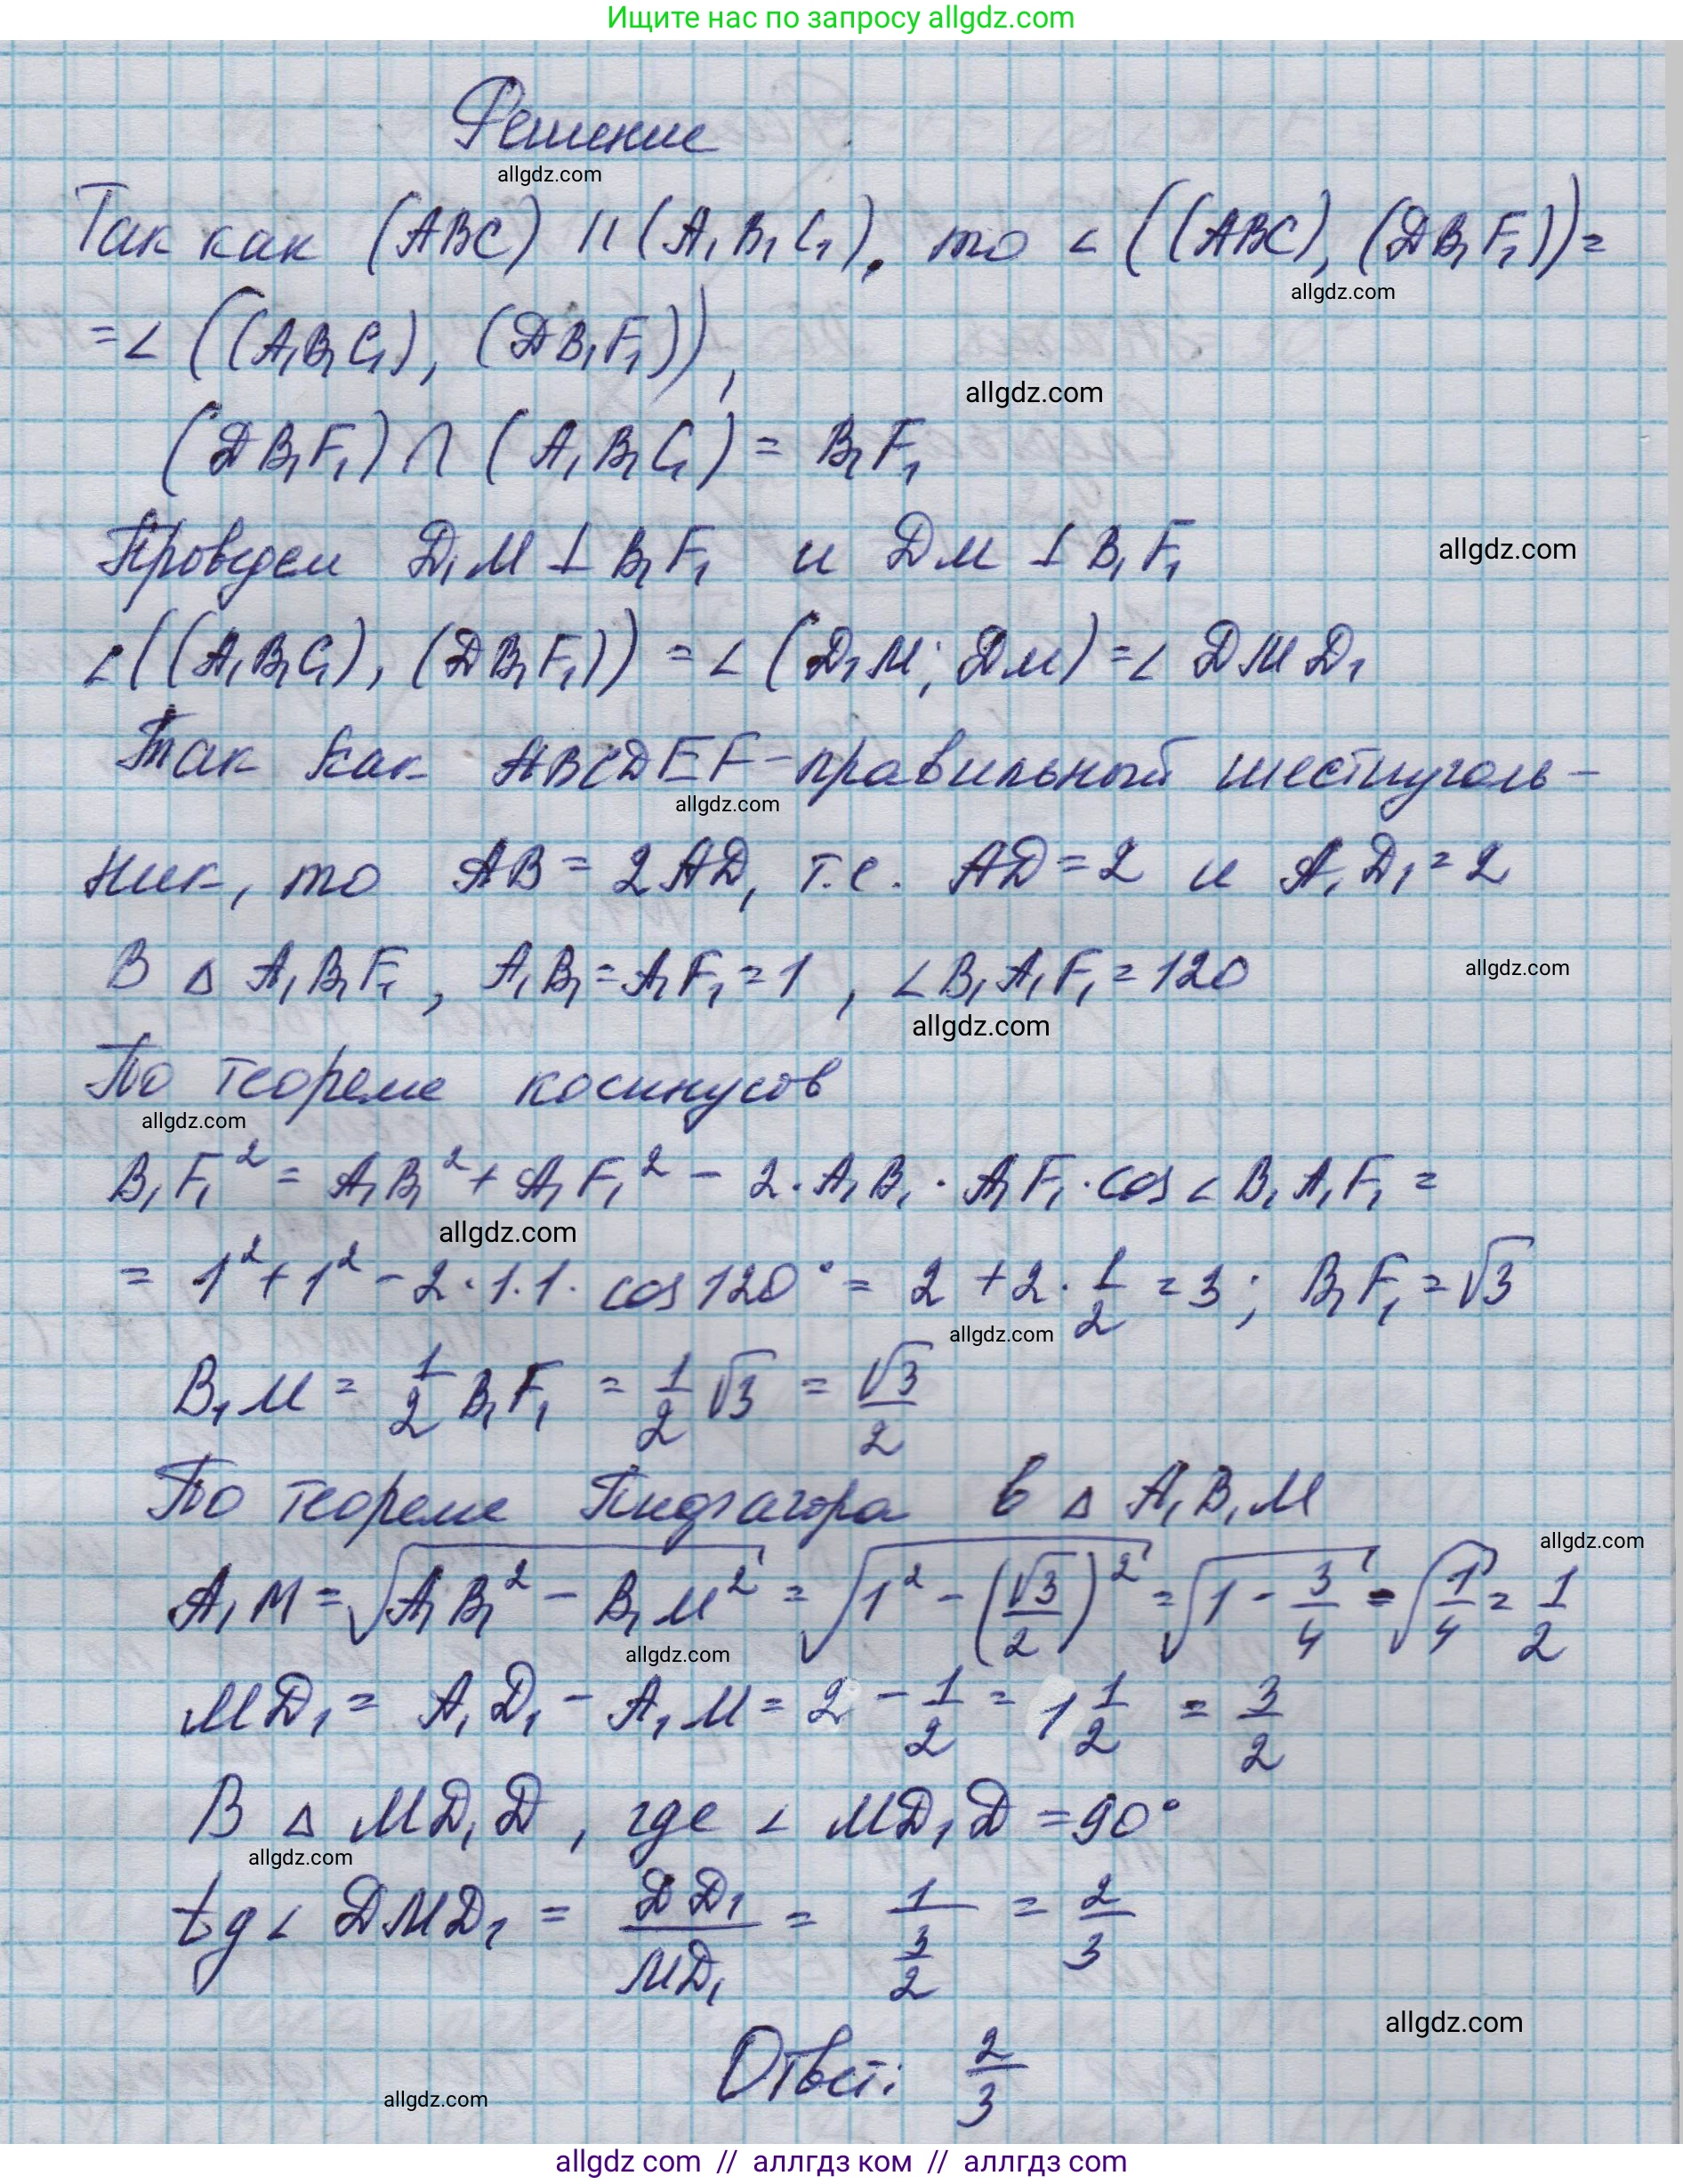 Ищите нас по запросу allgdz.com
Решение
allgdz.com
Так как (ABC) || (A₁B₁C₁), то ∠((ABC), (DB₁F₁)) =
allgdz.com
= ∠((A₁B₁C₁), (DB₁F₁)),
allgdz.com
(DB₁F₁) ∩ (A₁B₁C₁) = B₁F₁
Проведем D₁M ⊥ B₁F₁ и DM ⊥ B₁F₁
allgdz.com
∠((A₁B₁C₁), (DB₁F₁)) = ∠(D₁M; DM) = ∠DMD₁
Так как ABCDEF-правильный шестиуголь-
allgdz.com
ник, то AB = 2AD, т.е. AD = 2 и A₁D₁ = 2
В △ A₁B₁F₁, A₁B₁ = A₁F₁ = 1, ∠B₁A₁F₁ = 120
allgdz.com
allgdz.com
По теореме косинусов
allgdz.com
B₁F₁² = A₁B₁² + A₁F₁² - 2·A₁B₁·A₁F₁·cos∠B₁A₁F₁ =
allgdz.com
= 1² + 1² - 2·1·1·cos120° = 2 + 2·1/2 = 3; B₁F₁ = √3
allgdz.com
B₁M = 1/2 B₁F₁ = 1/2 √3 = √3/2
По теореме Пифагора в △ A₁B₁M
allgdz.com
A₁M = √(A₁B₁² - B₁M²) = √(1² - (√3/2)²) = √(1 - 3/4) = √(1/4) = 1/2
allgdz.com
MD₁ = A₁D₁ - A₁M = 2 - 1/2 = 1 1/2 = 3/2
В △ MD₁D, где ∠MD₁D = 90°
allgdz.com
tg∠DMD₁ = DD₁/MD₁ = 1/(3/2) = 2/3
allgdz.com
Ответ: 2/3
allgdz.com
allgdz.com // аллгдз ком // аллгдз com